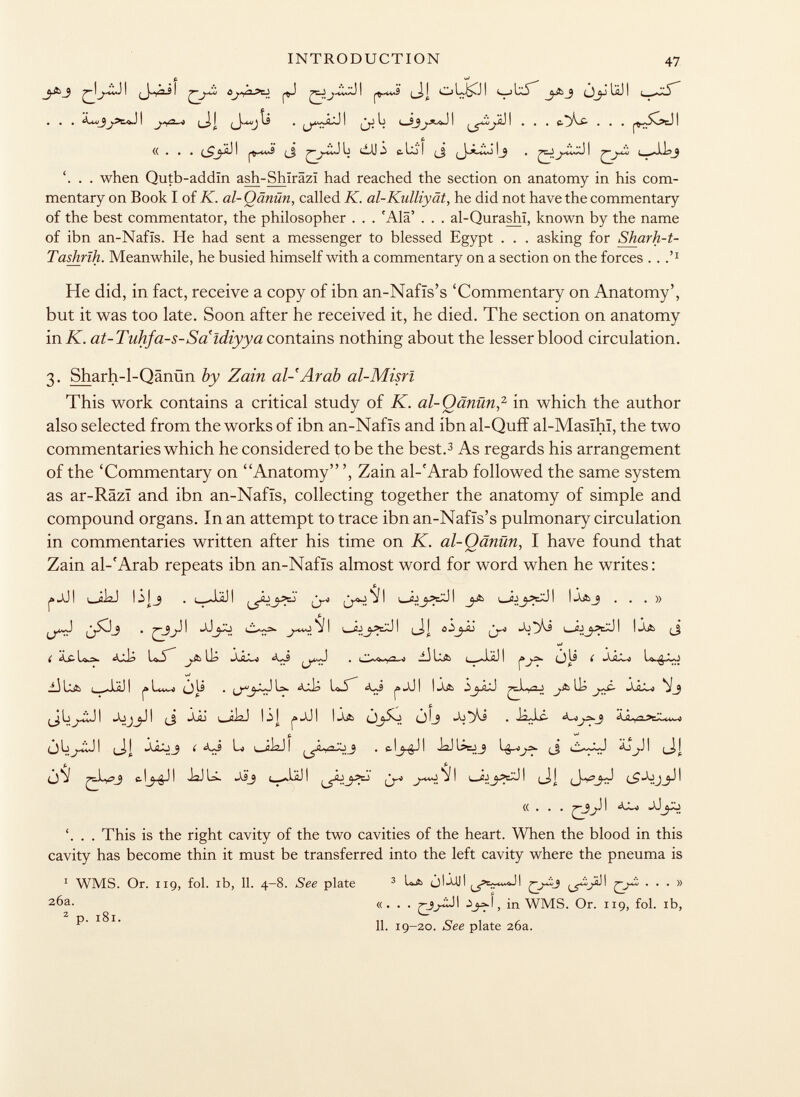 INTRODUCTION 47
كتب القانون وهو كتاب الكليات إلى قسم التشريح لم يحضره شرح أفضل الشراح وهو
الحكيم . . . علاء . . . القرشي المعروف بابن النفيس . فأرسل إلى مصر المحروسة . . .
وطلب شرح التشريح . واشتغل في أثناء ذلك بالشرح في قسم القوى . . . »
‘. . . when Qutb-addīn ash-Shīrāzī had reached the section on anatomy in his com-
mentary on Book I of K. al-Qānūn, called K. al-Kulliyāt, he did not have the commentary
of the best commentator, the philosopher . . . ‛Alā’ . . . al-Qurashī, known by the name
of ibn an-Nafīs. He had sent a messenger to blessed Egypt . . . asking for Sharh-t-
Tashrīh. Meanwhile, he busied himself with a commentary on a section on the forces . . .’¹
He did, in fact, receive a copy of ibn an-Nafīs’s ‘Commentary on Anatomy’,
but it was too late. Soon after he received it, he died. The section on anatomy
in K. at-Tuhfa-s-Sa‛īdiyya contains nothing about the lesser blood circulation.
3. Sharh-l-Qānūn by Zain al-‛Arab al-Misrī
This work contains a critical study of K. al-Qānūn,² in which the author
also selected from the works of ibn an-Nafīs and ibn al-Quff al-Masīhī, the two
commentaries which he considered to be the best.³ As regards his arrangement
of the ‘Commentary on “Anatomy”’, Zain al-‛Arab followed the same system
as ar-Rāzī and ibn an-Nafīs, collecting together the anatomy of simple and
compound organs. In an attempt to trace ibn an-Nafīs’s pulmonary circulation
in commentaries written after his time on K. al-Qānūn, I have found that
Zain al-‛Arab repeats ibn an-Nafīs almost word for word when he writes:
« . . . وهذا التجويف هو التجويف الأيمن من تجويفي القلب . وإذا لطف الدم
في هذا التجويف فلابد من نفوذه إلى التجويف الأيسر حيث يتولد الروح . ولكن ليس
بينهما منفذ ، فإن جرم القلب هناك مصمت . ليس فيه منفذ ظاهر كما ظنه جماعة ،
ولا منفذ غير ظاهر يصلح لنفوذ هذا الدم فيه كما ظنه جالينوس . فإن مسام القلب هناك
مستحصفة وجرمه غليظ . فلابد وأن يكون هذا الدم إذا لطف نفذ في الوريد الشريانى
إلى الرئة لينبث في جرمها ويخالط الهواء . ويتصفى ألطف ما فيه ، وينفذ إلى الشريان
الوريدى ليوصل إلى التجويف الأيسر من تجويفي القلب وقد خالط الهواء وصلح لأن
يتولد منه الروح . . . »
‘. . . This is the right cavity of the two cavities of the heart. When the blood in this
cavity has become thin it must be transferred into the left cavity where the pneuma is
¹ WMS. Or. 119, fol. 1b, ll. 4–8. See plate
26a.
² p. 181.
³ « . . . شرح القرشي وشرح المسيحي اللذان هما
أجود الشروح . . . », in WMS. Or. 119, fol. 1b,
ll. 19–20. See plate 26a.